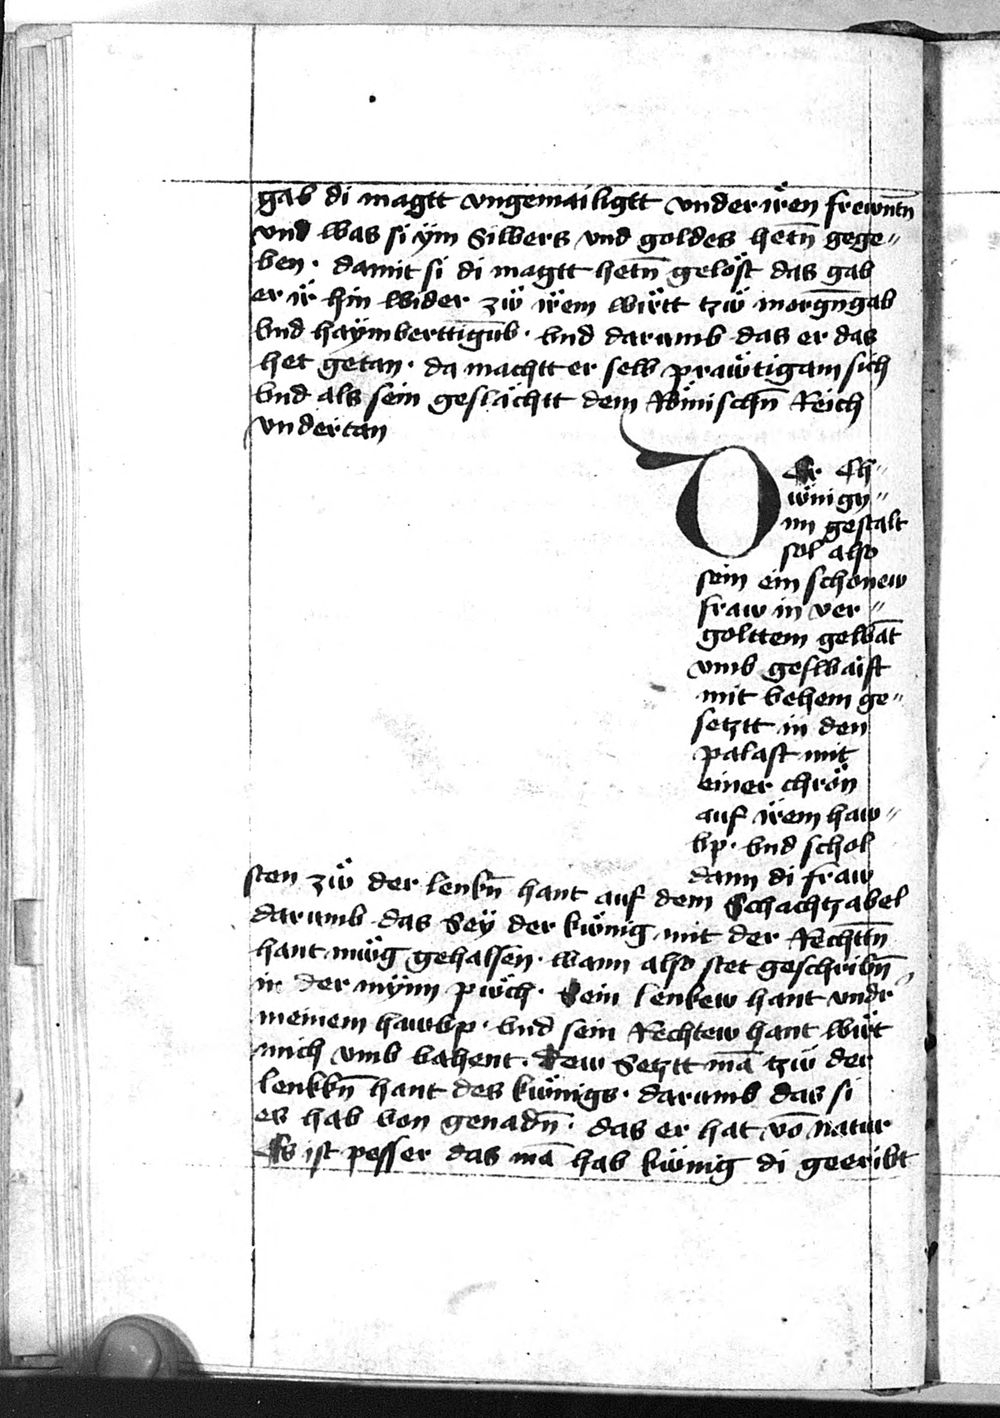 gab di magtt vngemailigtt vnder iren frewntn̄
vnd was si ym Silbers vnd goldes hetn̄ gege〃
ben · damit si di magtt hetn̄ gelöst das gab
er ir hin wider zw̎ irem wirtt tzw̎ morgn̄gab
vnd haÿmberttigūb · vnd darumb das er das
het getan · da machtt er selb prawtigam sich
vnd als sein geslächtt dem Römischn̄ Reich
vndertan
O er Ch〃
w̎nigy〃
nn gestalt
sol also
sein ein schonew
fraw in ver〃
golttem gewāt
vmb geswaift
mit vehem ge〃
setztt in den
palast mit
einer chrön
auf irem haw〃
bp · vnd schol
dann di fraw
sten zw̎ der lenkn̄ hant auf dem Schachtzabel
darumb das Seÿ der kw̎nig mit der Rechttn̄
hant mw̎g gehalsen · wann also stet geschribn̄
in der mynn pw̎ch · Sein lenkew hant vndr
meinem hawbp · vnd sein Rechtew hant wirt
mich vmb vahent · Dew Setztt mā tzw̎ der
lenkkn̄ hant des kw̎nigs · darumb das si
es hab von genadn̄ · das er hat vō natur
Es ist pesser das mā hab kw̎nig di geeribt